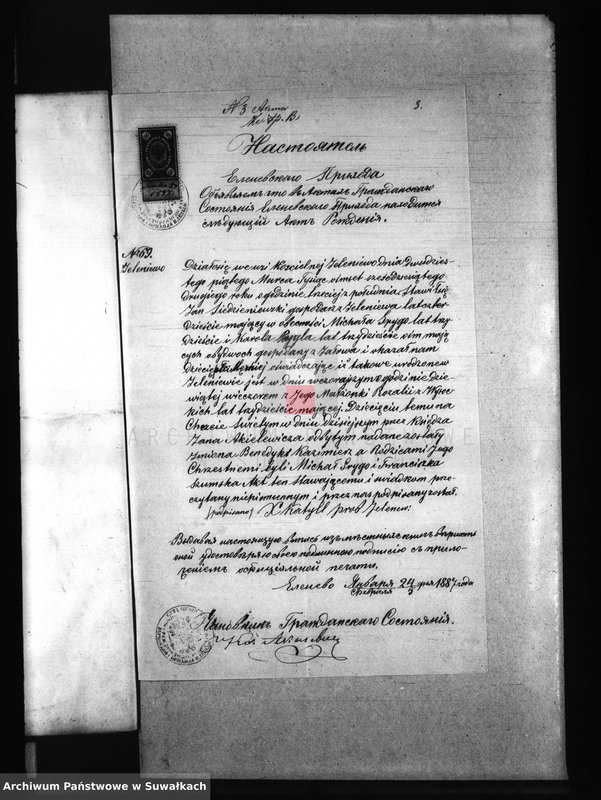 № 3 Акта
3.
Настоятель
Еленевскаго Прихода
Объявляетъ что въ Актахъ Гражданскаго
Состоянія Еленевскаго Прихода находится
слѣдующій Актъ Рожденія.
№ 69.
Jeleniewo
Działo się we wsi Kościelnej Jeleniewo dnia Dwudzies-
tego piątego Marca Tysiąc ośmset sześdziesiątego
drugiego roku o godzinie trzeciej z południa. Stawił się
Jan Siedzieniewski gospodarz z Jeleniewa lat czter
dzieście mający w obecności Michała Grygo lat trzy
dzieście i Karola lat trzydzieście ośm mają
cych obydwóch gospodarzy z i okazał nam
Dziecię płci Męzkiej oświadczając iż takowe urodzone w
Jeleniewie jest w dniu wczorajszym o godzinie dzie
wiątej wieczorem z Jego Małżonki Rozalii z
lat trzydzieście mającej. Dziecięciu temu na
Chrzcie Świętym w dniu dzisiejszym przez Księdza
Jana Akielewicza odbytym nadane zostały
Imiona Benedykt Kazimierz a Rodzicami Jego
Chrzestnemi byli Michał Grygo i Franciszka
Szumska Akt ten Stawającemu i świadkom prze-
czytany niepiśmiennym i przez nas podpisany został.
(podpisano) X Katyll prob Jelenie:
Выдавая настоящую выпись изъ мѣстныхъ книгъ вѣрность
оной удостовѣряю своею подлинною подписью съ прило-
женіемъ оффиціальной печати.
Еленево Января 24 дня 1887 года
Февраля 5
Чиновникъ Гражданскаго Состоянія.
ARCHIWUM PAŃSTWOWE
Archiwum Państwowe w Suwałkach